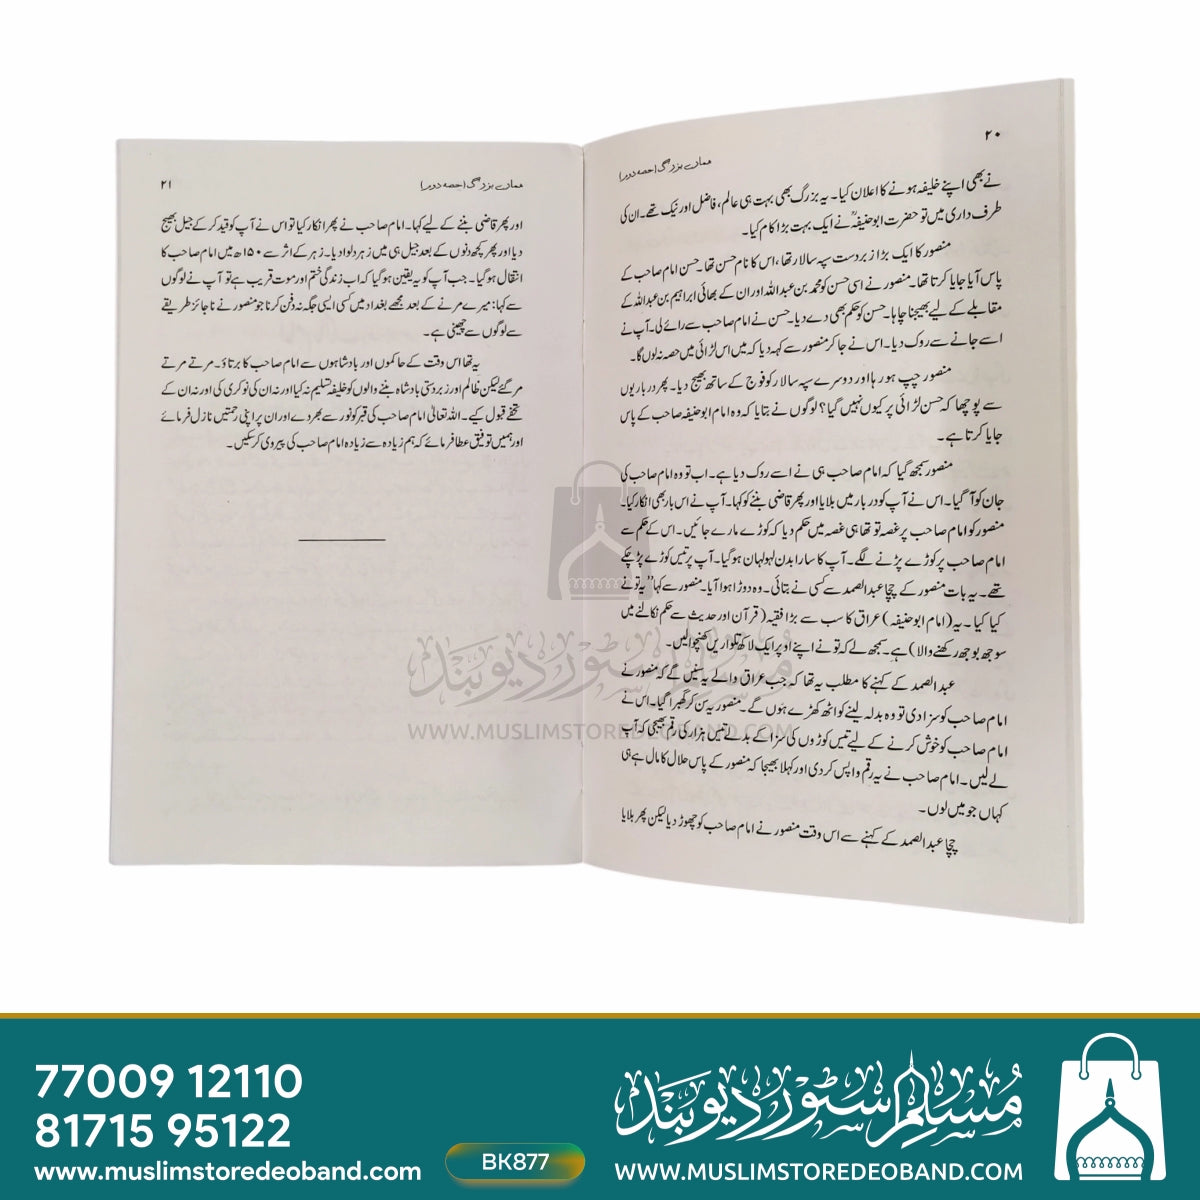 ۲۰
ہمارے بزرگ (حصہ دوم)
نے بھی اپنے خلیفہ ہونے کا اعلان کیا۔ یہ بزرگ بھی بہت ہی عالم، فاضل اور نیک تھے۔ ان کی
طرف داری میں تو حضرت ابوحنیفہؒ نے ایک بہت بڑا کام کیا۔
منصور کا ایک بڑا زبردست سپہ سالار تھا، اس کا نام حسن تھا۔ حسن امام صاحب کے
پاس آیا جایا کرتا تھا۔ منصور نے اسی حسن کو محمد بن عبداللہ اور ان کے بھائی ابراہیم بن عبداللہ کے
مقابلے کے لیے بھیجنا چاہا۔ حسن کو حکم بھی دے دیا۔ حسن نے امام صاحب سے رائے لی۔ آپ نے
اسے جانے سے روک دیا۔ اس نے جا کر منصور سے کہہ دیا کہ میں اس لڑائی میں حصہ نہ لوں گا۔
منصور چپ ہو رہا اور دوسرے سپہ سالار کو فوج کے ساتھ بھیج دیا۔ پھر درباریوں
سے پوچھا کہ حسن لڑائی پر کیوں نہیں گیا؟ لوگوں نے بتایا کہ وہ امام ابوحنیفہ صاحب کے پاس
جایا کرتا ہے۔
منصور سمجھ گیا کہ امام صاحب ہی نے اسے روک دیا ہے۔ اب تو وہ امام صاحب کی
جان کو آ گیا۔ اس نے آپ کو دربار میں بلایا اور پھر قاضی بننے کو کہا۔ آپ نے اس بار بھی انکار کیا۔
منصور کو امام صاحب پر غصہ تو تھا ہی غصہ میں حکم دیا کہ کوڑے مارے جائیں۔ اس کے حکم سے
امام صاحب پر کوڑے پڑنے لگے۔ آپ کا سارا بدن لہولہان ہو گیا۔ آپ پر تیس کوڑے پڑ چکے
تھے۔ یہ بات منصور کے چچا عبدالصمد سے کسی نے بتائی۔ وہ دوڑا ہوا آیا۔ منصور سے کہا ”یہ تو نے
کیا کیا۔ یہ (امام ابوحنیفہ) عراق کا سب سے بڑا فقیہ (قرآن اور حدیث سے حکم نکالنے میں
سوجھ بوجھ رکھنے والا) ہے۔ سمجھ لے کہ تو نے اپنے اوپر ایک لاکھ تلواریں کھنچوالیں۔
عبدالصمد کے کہنے کا مطلب یہ تھا کہ جب عراق والے یہ سنیں گے کہ منصور نے
امام صاحب کو سزا دی تو وہ بدلہ لینے کو اٹھ کھڑے ہوں گے۔ منصور یہ سن کر گھبرا گیا۔ اس نے
امام صاحب کو خوش کرنے کے لیے تیس کوڑوں کی سزا کے بدلے تیس ہزار کی رقم بھیجی کہ آپ
لے لیں۔ امام صاحب نے یہ رقم واپس کر دی اور کہلا بھیجا کہ منصور کے پاس حلال کا مال ہے ہی
کہاں جو میں لوں۔
چچا عبدالصمد کے کہنے سے اس وقت منصور نے امام صاحب کو چھوڑ دیا لیکن پھر بلایا
ہمارے بزرگ (حصہ دوم)
۲۱
اور پھر قاضی بننے کے لیے کہا۔ امام صاحب نے پھر انکار کیا تو اس نے آپ کو قید کر کے جیل بھیج
دیا اور پھر کچھ دنوں کے بعد جیل ہی میں زہر دلوا دیا۔ زہر کے اثر سے ۱۵۰ھ میں امام صاحب کا
انتقال ہو گیا۔ جب آپ کو یہ یقین ہو گیا کہ اب زندگی ختم اور موت قریب ہے تو آپ نے لوگوں
سے کہا: میرے مرنے کے بعد مجھے بغداد میں کسی ایسی جگہ نہ دفن کرنا جو منصور نے ناجائز طریقے
سے لوگوں سے چھینی ہے۔
یہ تھا اس وقت کے حاکموں اور بادشاہوں سے امام صاحب کا برتاؤ۔ مرتے مرتے
مر گئے لیکن ظالم اور زبردستی بادشاہ بننے والوں کو خلیفہ تسلیم نہ کیا اور نہ ان کی نوکری کی اور نہ ان کے
تحفے قبول کیے۔ اللہ تعالیٰ امام صاحب کی قبر کو نور سے بھر دے اور ان پر اپنی رحمتیں نازل فرمائے
اور ہمیں توفیق عطا فرمائے کہ ہم زیادہ سے زیادہ امام صاحب کی پیروی کر سکیں۔
مسلم سٹور دیوبند
WWW.MUSLIMSTOREDEOBAND.COM
77009 12110
81715 95122
www.muslimstoredeoband.com
BK877
مسلم سٹور دیوبند
WWW.MUSLIMSTOREDEOBAND.COM